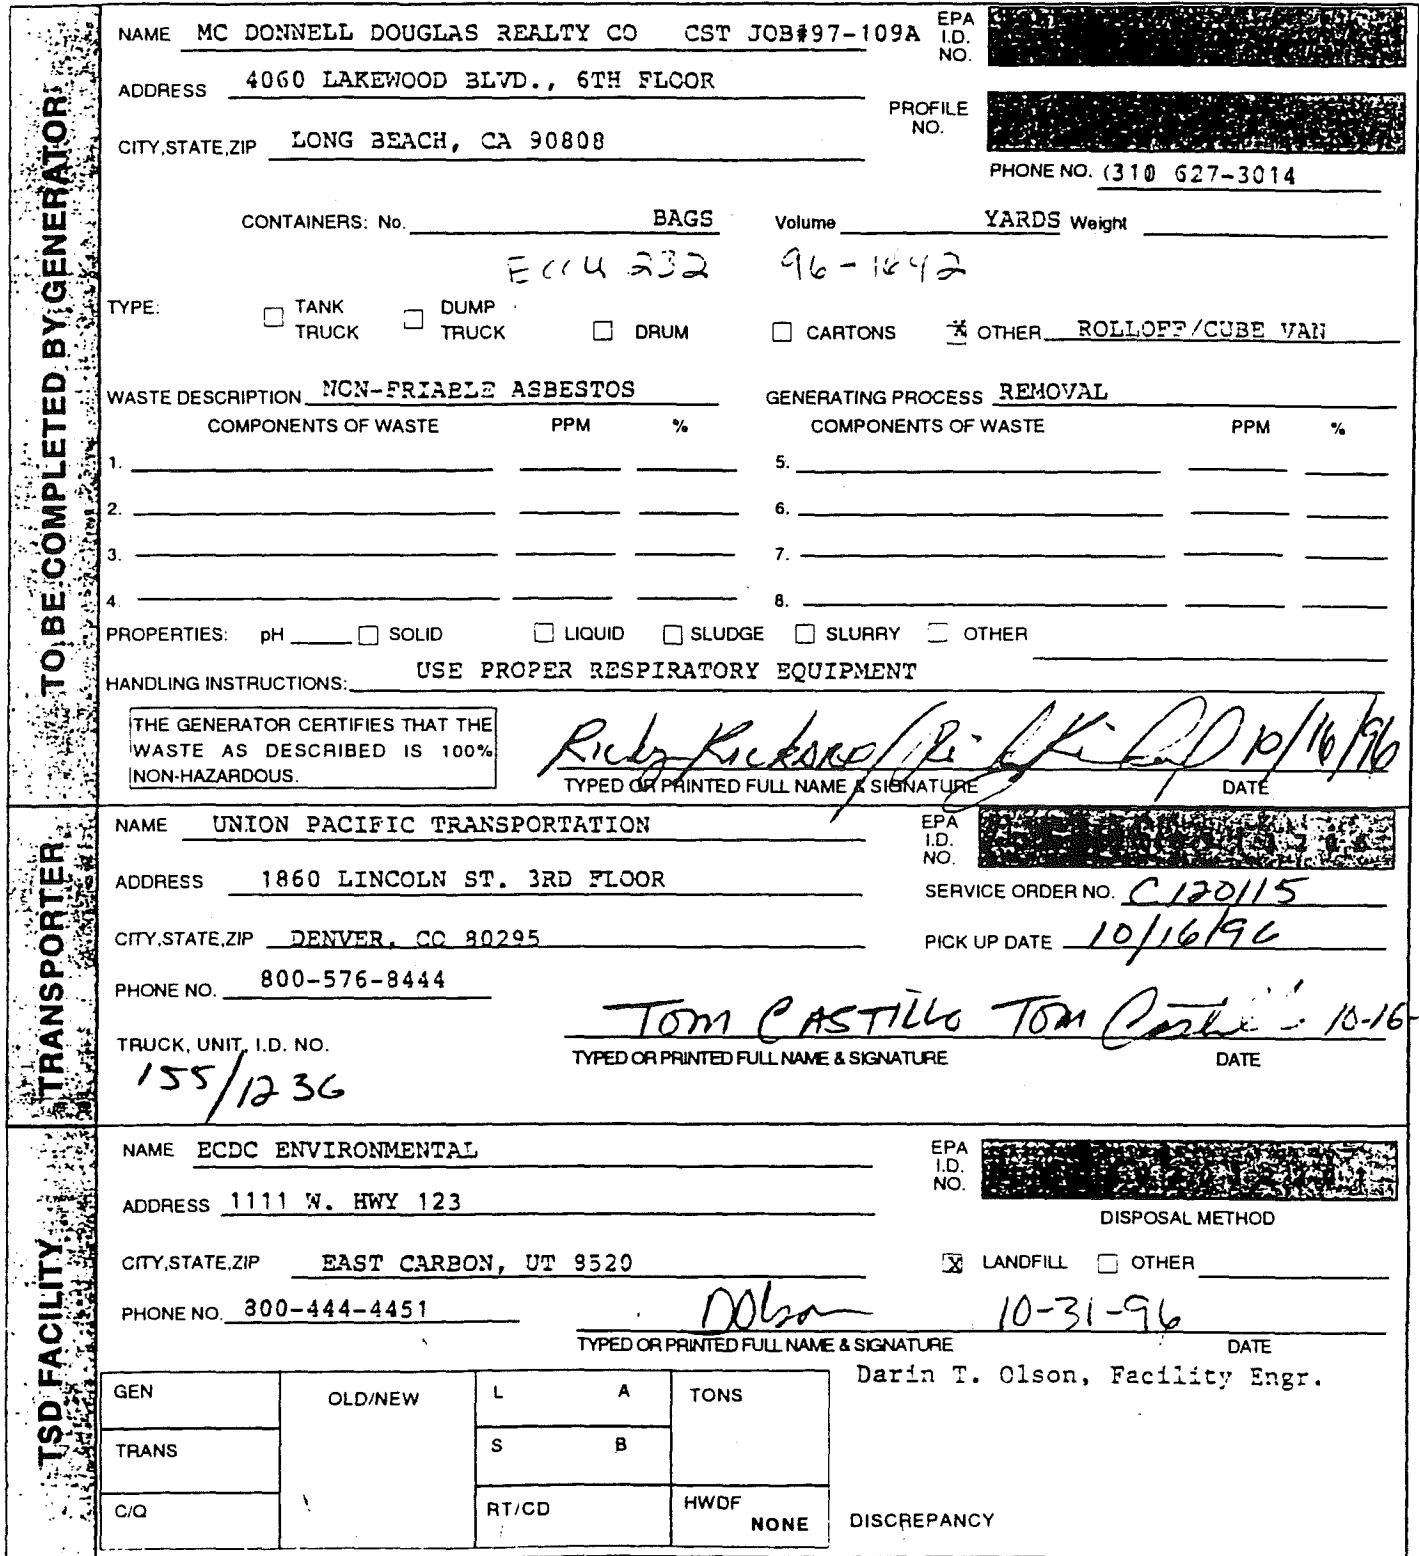 TO BE COMPLETED BY GENERATOR
NAME MC DONNELL DOUGLAS REALTY CO CST JOB#97-109A EPA I.D. NO.
ADDRESS 4060 LAKEWOOD BLVD., 6TH FLOOR
PROFILE NO.
CITY,STATE,ZIP LONG BEACH, CA 90808
PHONE NO. (310 627-3014
CONTAINERS: No. BAGS Volume YARDS Weight
232 96-1842
TYPE: TANK TRUCK DUMP TRUCK DRUM CARTONS X OTHER ROLLOFF/CUBE VAN
WASTE DESCRIPTION NON-FRIABLE ASBESTOS GENERATING PROCESS REMOVAL
COMPONENTS OF WASTE PPM % COMPONENTS OF WASTE PPM %
1. 5.
2. 6.
3. 7.
4. 8.
PROPERTIES: pH SOLID LIQUID SLUDGE SLURRY OTHER
HANDLING INSTRUCTIONS: USE PROPER RESPIRATORY EQUIPMENT
THE GENERATOR CERTIFIES THAT THE
WASTE AS DESCRIBED IS 100%
NON-HAZARDOUS.
10/16/96
TYPED OR PRINTED FULL NAME & SIGNATURE DATE
TRANSPORTER
NAME UNION PACIFIC TRANSPORTATION EPA I.D. NO.
ADDRESS 1860 LINCOLN ST. 3RD FLOOR
SERVICE ORDER NO. C120115
CITY,STATE,ZIP DENVER, CO 80295 PICK UP DATE 10/16/96
PHONE NO. 800-576-8444
TOM CASTILLO TOM Castillo 10-16-
TRUCK, UNIT, I.D. NO. TYPED OR PRINTED FULL NAME & SIGNATURE DATE
155/1236
TSD FACILITY
NAME ECDC ENVIRONMENTAL EPA I.D. NO.
ADDRESS 1111 W. HWY 123
DISPOSAL METHOD
CITY,STATE,ZIP EAST CARBON, UT 8520 X LANDFILL OTHER
PHONE NO. 800-444-4451 DOlson 10-31-96
TYPED OR PRINTED FULL NAME & SIGNATURE DATE
Darin T. Olson, Facility Engr.
GEN OLD/NEW L A TONS
TRANS S B
C/Q RT/CD HWDF NONE DISCREPANCY